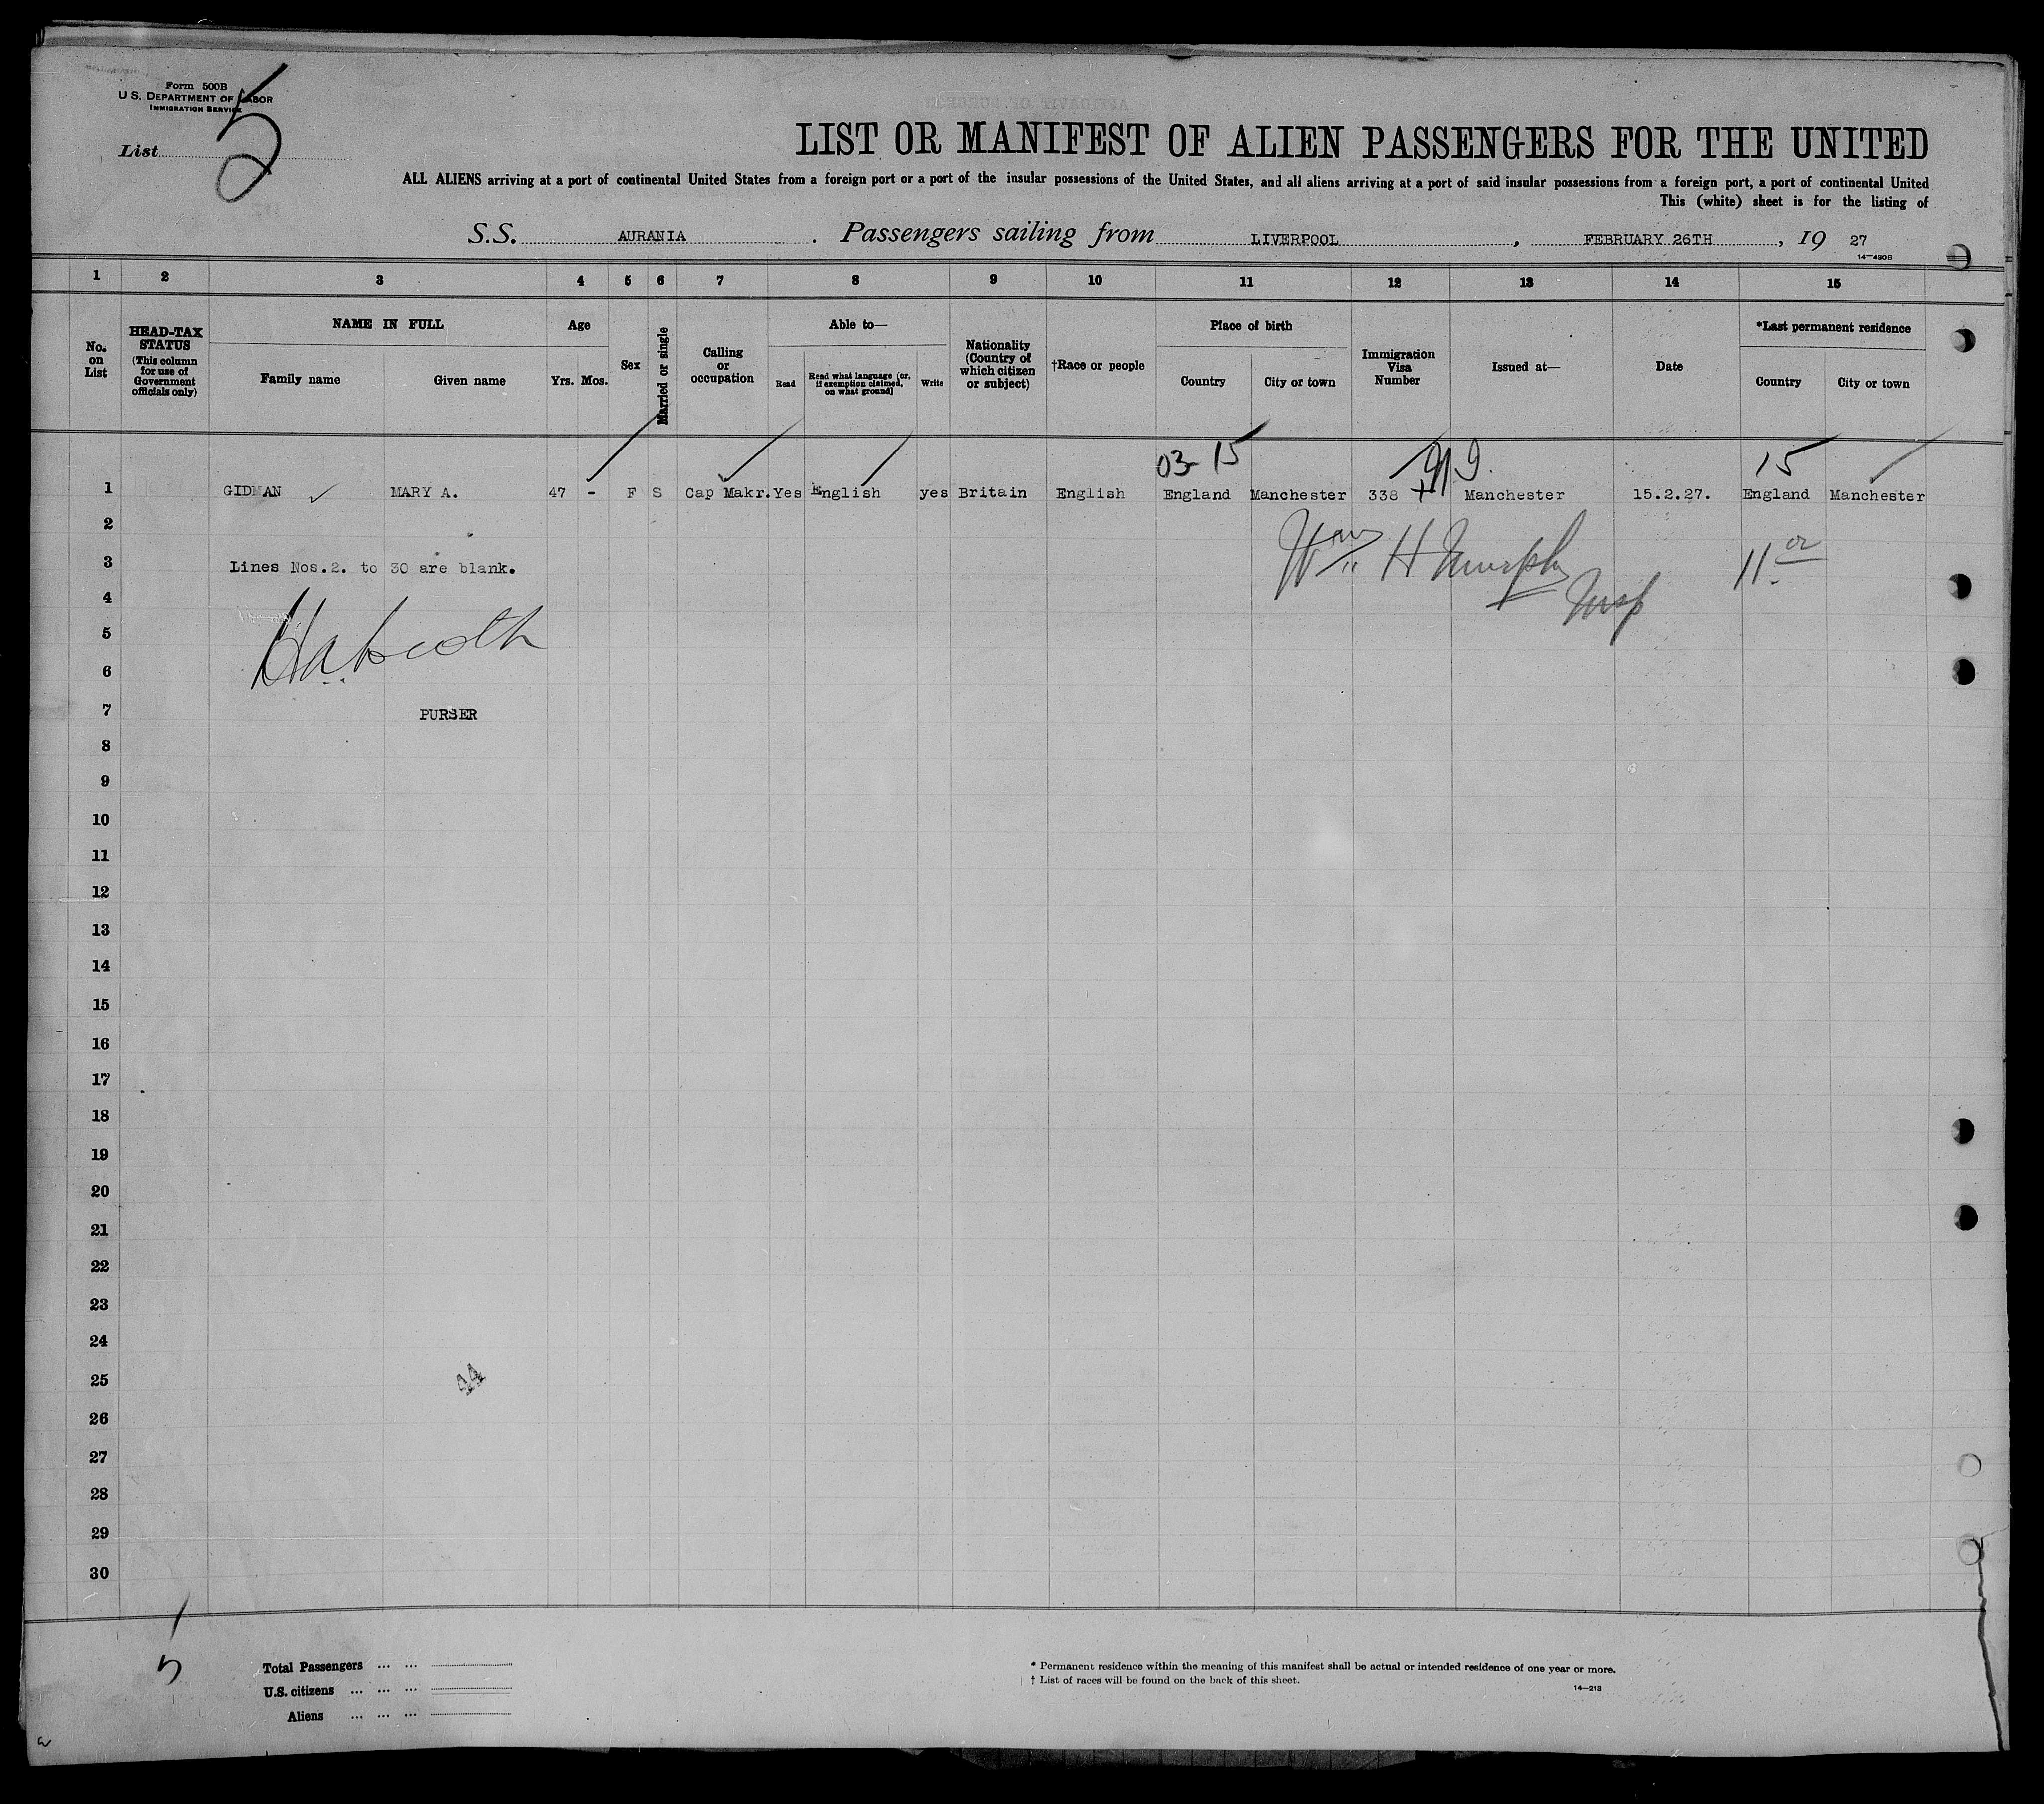 Form 500B
U.S. DEPARTMENT OF LABOR
IMMIGRATION SERVICE
List 5
LIST OR MANIFEST OF ALIEN PASSENGERS FOR THE UNITED
ALL ALIENS arriving at a port of continental United States from a foreign port or a port of the insular possessions of the United States, and all aliens arriving at a port of said insular possessions from a foreign port, a port of continental United
This (white) sheet is for the listing of
S.S. AURANIA. Passengers sailing from LIVERPOOL, FEBRUARY 26TH, 19 27
14—430B
1 2 3 4 5 6 7 8 9 10 11 12 13 14 15
No. on List
HEAD-TAX STATUS (This column for use of Government officials only)
NAME IN FULL
Family name Given name
Age
Yrs. Mos.
Sex
Married or single
Calling or occupation
Able to—
Read
Read what language (or, if exemption claimed, on what ground)
Write
Nationality (Country of which citizen or subject)
†Race or people
Place of birth
Country City or town
Immigration Visa Number
Issued at—
Date
*Last permanent residence
Country City or town
03-15 15
1 GIDMAN MARY A. 47 - F S Cap Makr. Yes English yes Britain English England Manchester 338 Manchester 15.2.27. England Manchester
2
Wm H Murphy
Insp
3 Lines Nos.2. to 30 are blank.
4
5
6
7 PURSER
8
9
10
11
12
13
14
15
16
17
18
19
20
21
22
23
24
25
44
26
27
28
29
30
Total Passengers ... ...
U.S. citizens ... ... ...
Aliens ... ... ...
* Permanent residence within the meaning of this manifest shall be actual or intended residence of one year or more.
† List of races will be found on the back of this sheet.
14—213